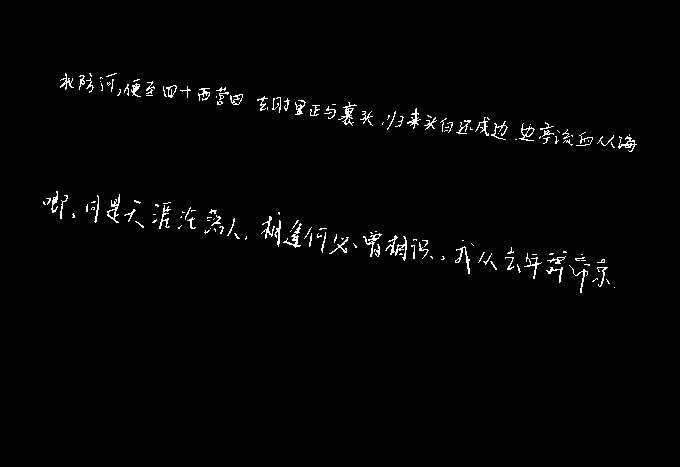 北防河,便至四十西营田 去时里正与裹头 归来头白还戍边 边亭流血从海
唧。同是天涯沦落人,相逢何必曾相识。我从去年辞帝京